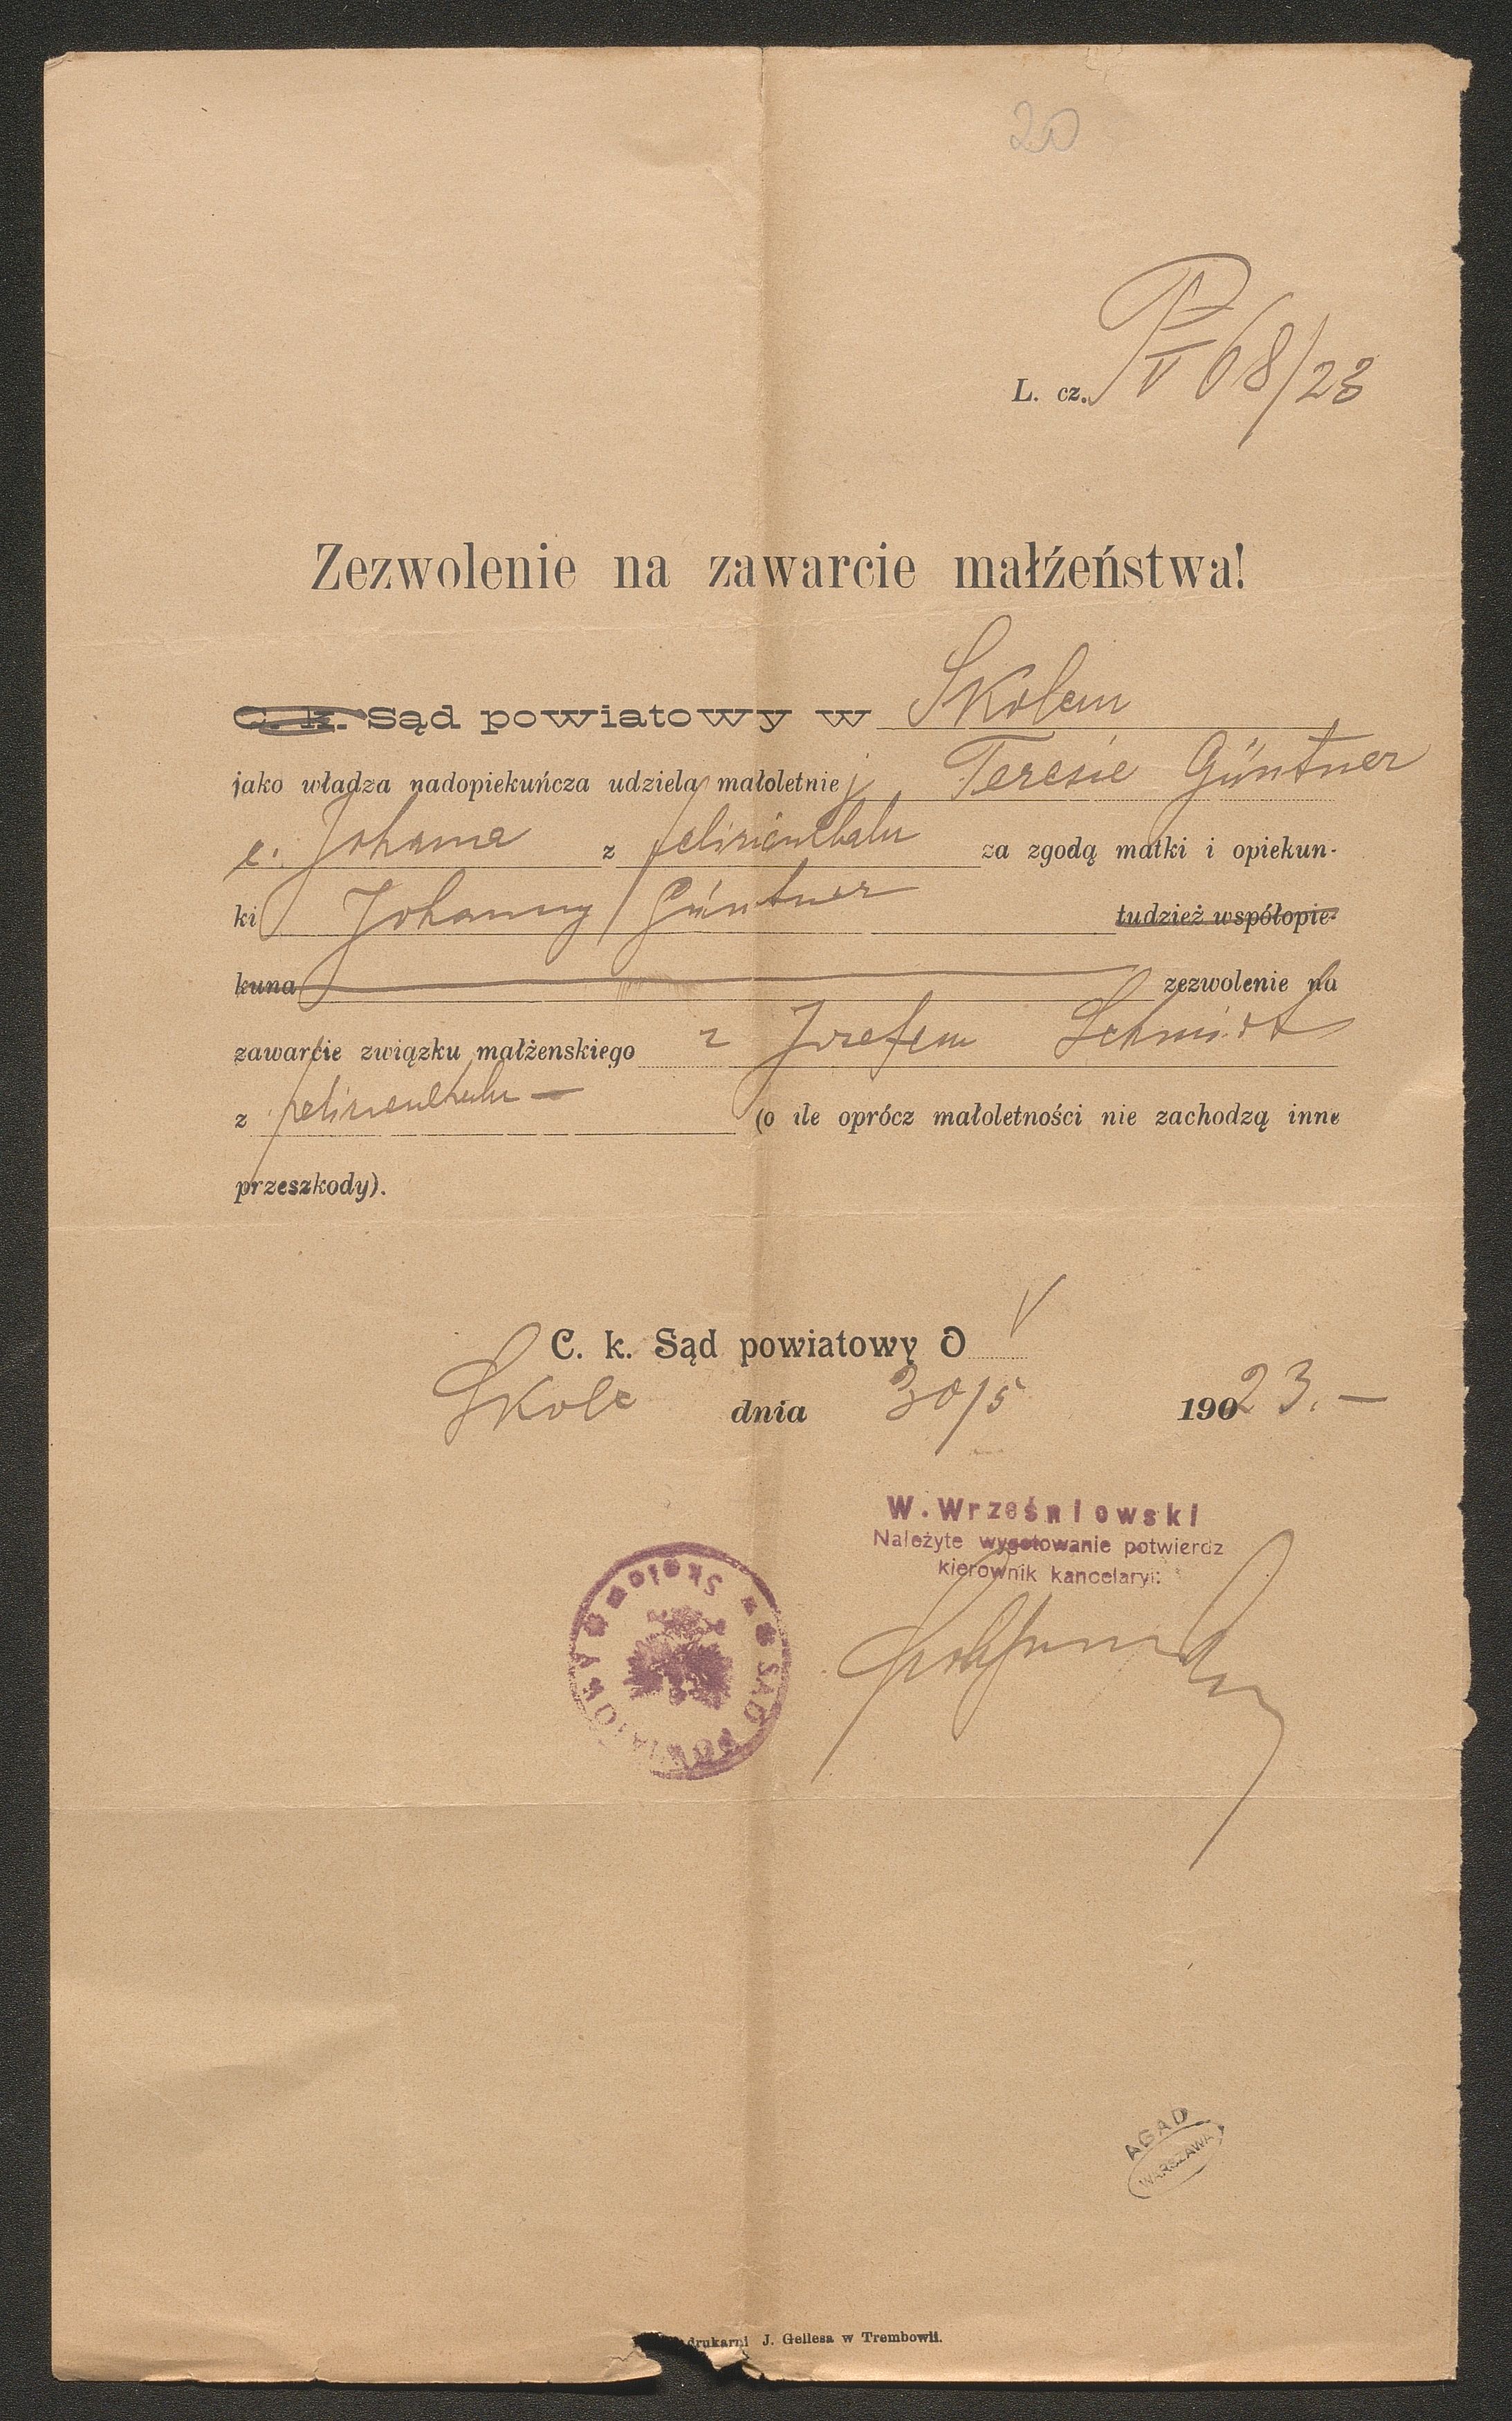 20
L. cz. P V 68/23
Zezwolenie na zawarcie małźeństwa!
C. k. Sąd powiatowy w Skolem
jako władza nadopiekuńcza udziela małoletniej Teresie Güntner
c. Johanna z Felizienthalu za zgodą matki i opiekun-
ki Johanny Güntner tudzież współopie-
kuna zezwolenie na
zawarcie związku małżenskiego z Jozefem Schmidt
z Felizienthalu — (o ile oprócz małoletności nie zachodzą inne
przeszkody).
C. k. Sąd powiatowy O V
Skole dnia 30/5 19023. —
W. Wrześniowski
Należyte wygotowanie potwierdz
kierownik kancelaryi:
SĄD POWIATOWY w Skolem
AGAD
WARSZAWA
drukarni J. Gellesa w Trembowli.